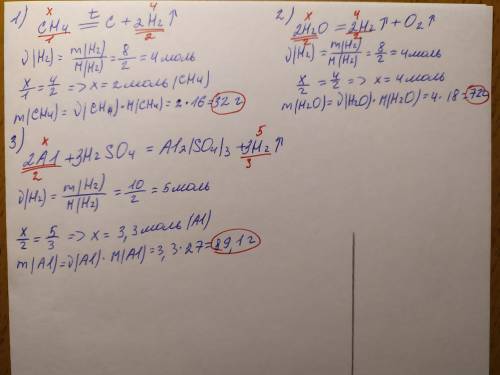 1) x 4
CH4 t= C + 2H2↑
1 2
ν(H2) = m(H2)/M(H2) = 8/2 = 4 моль
x/1 = 4/2 => x = 2 моль (CH4)
m(CH4) = ν(CH4)·M(CH4) = 2·16 = 32 г
2) x 4
2H2O = 2H2↑ + O2↑
2 2
ν(H2) = m(H2)/M(H2) = 8/2 = 4 моль
x/2 = 4/2 => x = 4 моль
m(H2O) = ν(H2O)·M(H2O) = 4·18 = 72 г
3) x 5
2Al + 3H2SO4 = Al2(SO4)3 + 3H2↑
2 3
ν(H2) = m(H2)/M(H2) = 10/2 = 5 моль
x/2 = 5/3 => x = 3,3 моль (Al)
m(Al) = ν(Al)·M(Al) = 3,3·27 = 89,1 г